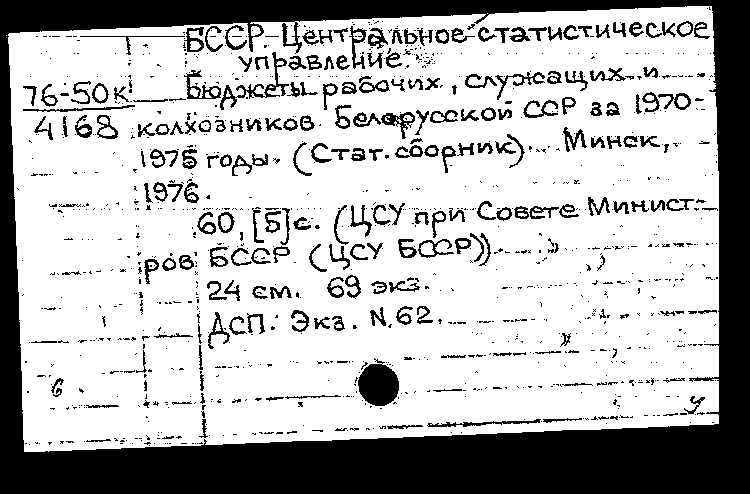 БССР. Центральное статистическое
управление.
76-50к бюджеты рабочих, служащих и
4168 колхозников Белорусской ССР за 1970-
1975 годы. (Стат. сборник). Минск,
1976.
60, [5]с. (ЦСУ при Совете Минист-
ров БССР (ЦСУ БССР)).
24 см. 69 экз.
ДСП. Экз. N.62.
6.